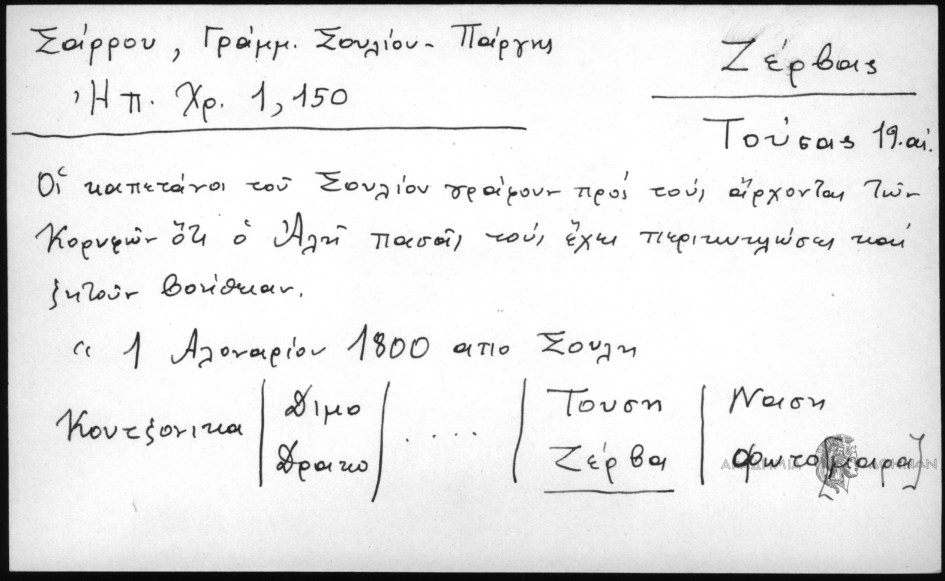 Σάρρου, Γράμμ. Σουλίου - Πάργης
Ἠπ. Χρ. 1, 150
Ζέρβας
Τούσας 19.αἰ.
Οἱ καπετάνοι τοῦ Σουλίου γράφουν πρός τούς ἄρχοντας τῶν
Κορυφῶν ὅτι ὁ Ἀλῆ πασᾶς τούς ἔχει περικυκλώσει καί
ζητοῦν βοήθειαν.
“ 1 Αλοναρίου 1800 απο Σουλη
Κουτζονικα | Διμο | ..... | Τουση | Ναση
Δρακο | Ζέρβα | Φωτο[μαρα]
ΑΚΑΔΗΜΙΑ ΑΘΗΝΩΝ